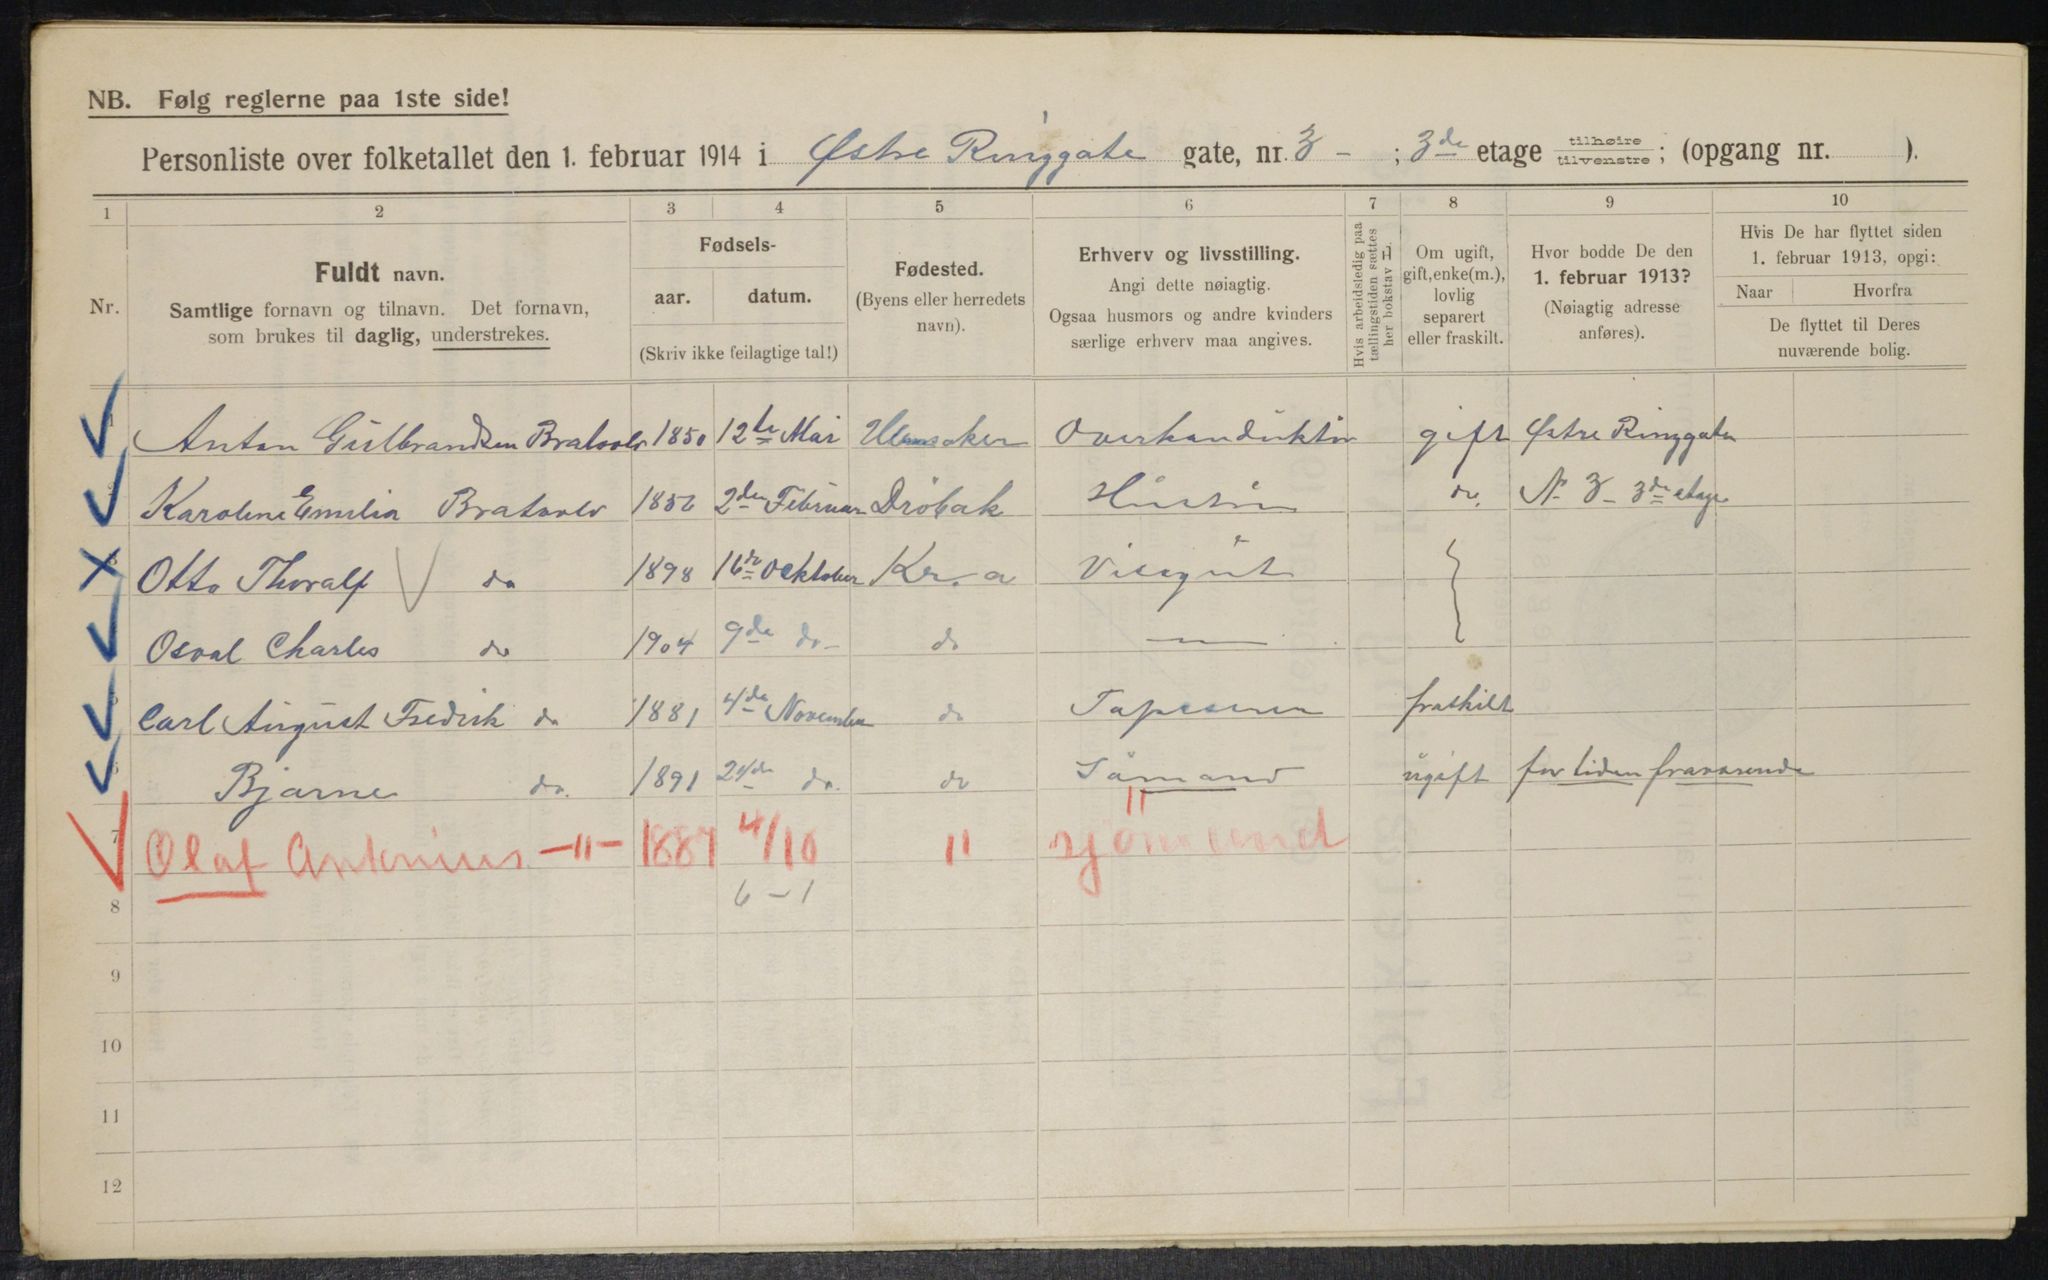 NB. Følg reglerne paa 1ste side!
Personliste over folketallet den 1. februar 1914 i Østre Ringgate gate, nr. 3 - ; 3de etage tilhøire tilvenstre; (opgang nr. ).
1 2 3 4 5 6 7 8 9 10
Nr.
Fuldt navn.
Samtlige fornavn og tilnavn. Det fornavn,
som brukes til daglig, understrekes.
Fødsels-
aar. datum.
(Skriv ikke feilagtige tal!)
Fødested.
(Byens eller herredets
navn).
Erhverv og livsstilling.
Angi dette nøiagtig.
Ogsaa husmors og andre kvinders
særlige erhverv maa angives.
Hvis arbeidsledig paa
tællingstiden sættes
her bokstav
Om ugift,
gift, enke(m.),
lovlig
separert
eller fraskilt.
Hvor bodde De den
1. februar 1913?
(Nøiagtig adresse
anføres).
Hvis De har flyttet siden
1. februar 1913, opgi:
Naar Hvorfra
De flyttet til Deres
nuværende bolig.
Anton Gulbrandsen 1850 12te Mai gift Østre Ringgate
Karoline Emilia 2den Februar Dröbak do. N. 3 - 3de etage
Otto Thoralf do 1898 16de Oktober Kr.a Visergut
Osval Charles do 1904 9de do - do —
Carl August Fredrik do 1881 4de November do fraskilt
Bjarne do. 1891 do. do Sömand ugift for tiden fraværende
7 Olaf Antonius -"- 1887 4/10 " sjömand
8 6 - 1
9
10
11
12